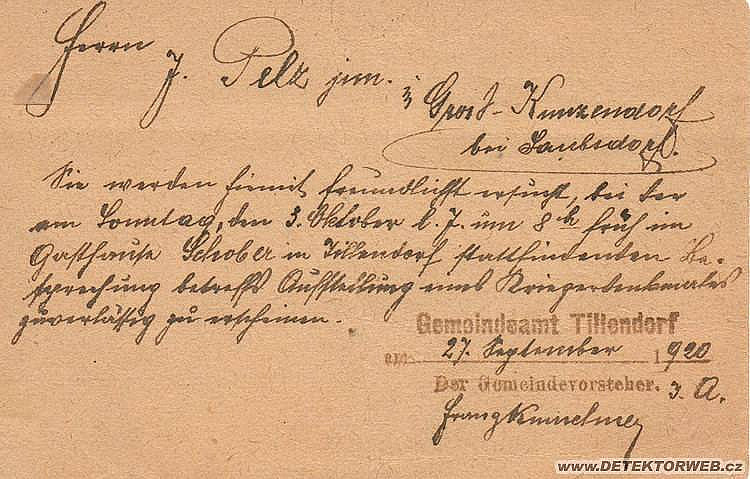 Herrn
J. Pelz jun.
in Groß-Kunzendorf
bei Saubsdorf.
Sie werden hiemit freundlichst ersucht, bei der
am Sonntag, den 3. Oktober l. J. um 8 h früh im
Gasthause Schober in Tillendorf stattfindenden Be-
sprechung betreffs Aufstellung eines Kriegerdenkmales
zuverlässig zu erscheinen.
Gemeindeamt Tillendorf
am 27. September 1920
Der Gemeindevorsteher. I. A.
Franz
www.DETEKTORWEB.cz